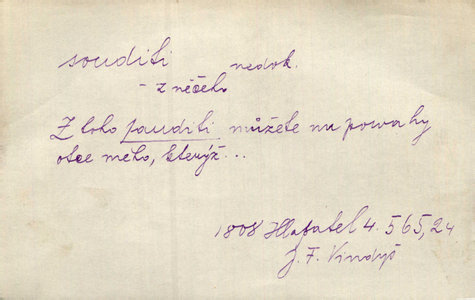 souditi nedok.
- z něčeho
Z toho sauditi můžete na powahy
otce mého, kterýž...
1808 Hlasatel 4. 565,24
J. F. Vindyš